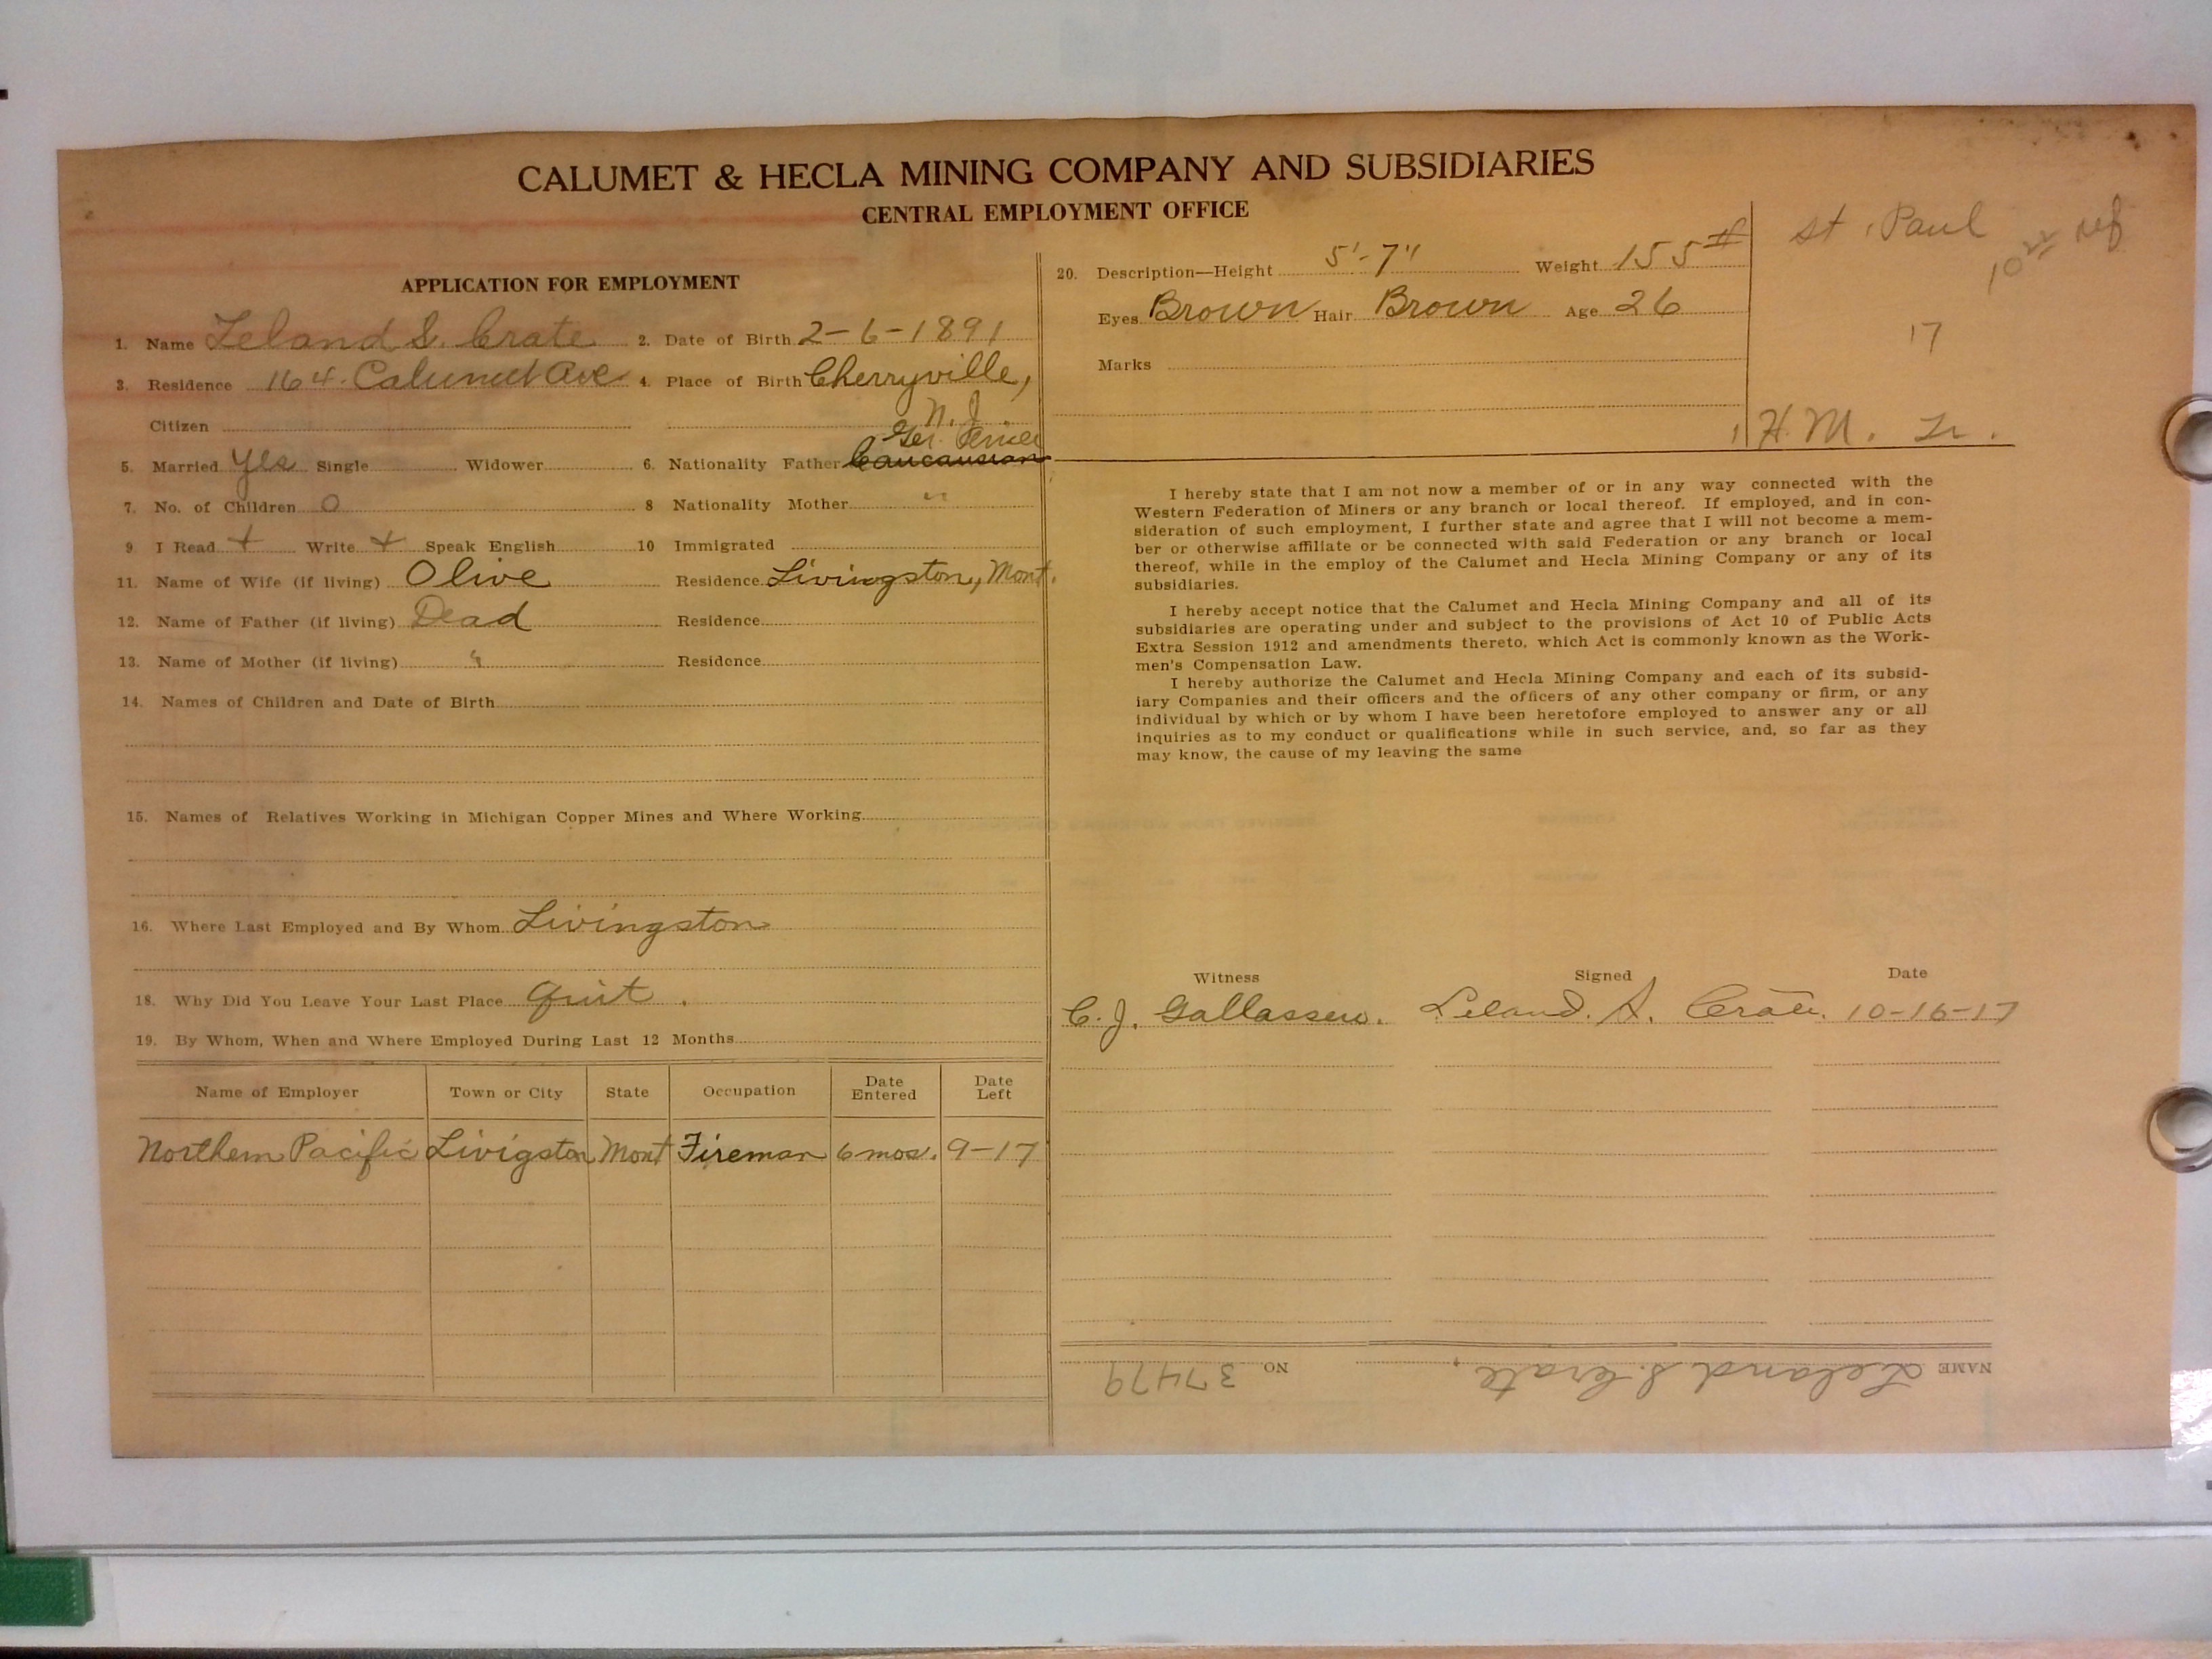 CALUMET & HECLA MINING COMPANY AND SUBSIDIARIES
CENTRAL EMPLOYMENT OFFICE
APPLICATION FOR EMPLOYMENT
1. Name Leland S. Crate 2. Date of Birth 2-6-1891
3. Residence 164 Calumet Ave 4. Place of Birth Cherryville,
Citizen N. J.
Ger.
5. Married Yes Single Widower 6. Nationality Father Caucausian
7. No. of Children 0 8 Nationality Mother "
9 I Read + Write + Speak English 10 Immigrated
11. Name of Wife (if living) Olive Residence Livingston, Mont.
12. Name of Father (if living) Dead Residence
13. Name of Mother (if living) " Residence
14. Names of Children and Date of Birth
15. Names of Relatives Working in Michigan Copper Mines and Where Working
16. Where Last Employed and By Whom Livingston
18. Why Did You Leave Your Last Place Quit.
19. By Whom, When and Where Employed During Last 12 Months
Name of Employer Town or City State Occupation Date Entered Date Left
Northern Pacific Livigston Mont Fireman 6 mos. 9-17
20. Description—Height 5'-7" Weight 155#
Eyes Brown Hair Brown Age 26
Marks
St. Paul
10 22 ref
17
H. M.
I hereby state that I am not now a member of or in any way connected with the
Western Federation of Miners or any branch or local thereof. If employed, and in con-
sideration of such employment, I further state and agree that I will not become a mem-
ber or otherwise affiliate or be connected with said Federation or any branch or local
thereof, while in the employ of the Calumet and Hecla Mining Company or any of its
subsidiaries.
I hereby accept notice that the Calumet and Hecla Mining Company and all of its
subsidiaries are operating under and subject to the provisions of Act 10 of Public Acts
Extra Session 1912 and amendments thereto, which Act is commonly known as the Work-
men's Compensation Law.
I hereby authorize the Calumet and Hecla Mining Company and each of its subsid-
iary Companies and their officers and the officers of any other company or firm, or any
individual by which or by whom I have been heretofore employed to answer any or all
inquiries as to my conduct or qualifications while in such service, and, so far as they
may know, the cause of my leaving the same
Witness Signed Date
C. J. Gallassero. Leland. S. Crate. 10-16-17
NAME Leland S. Crate, NO 37479